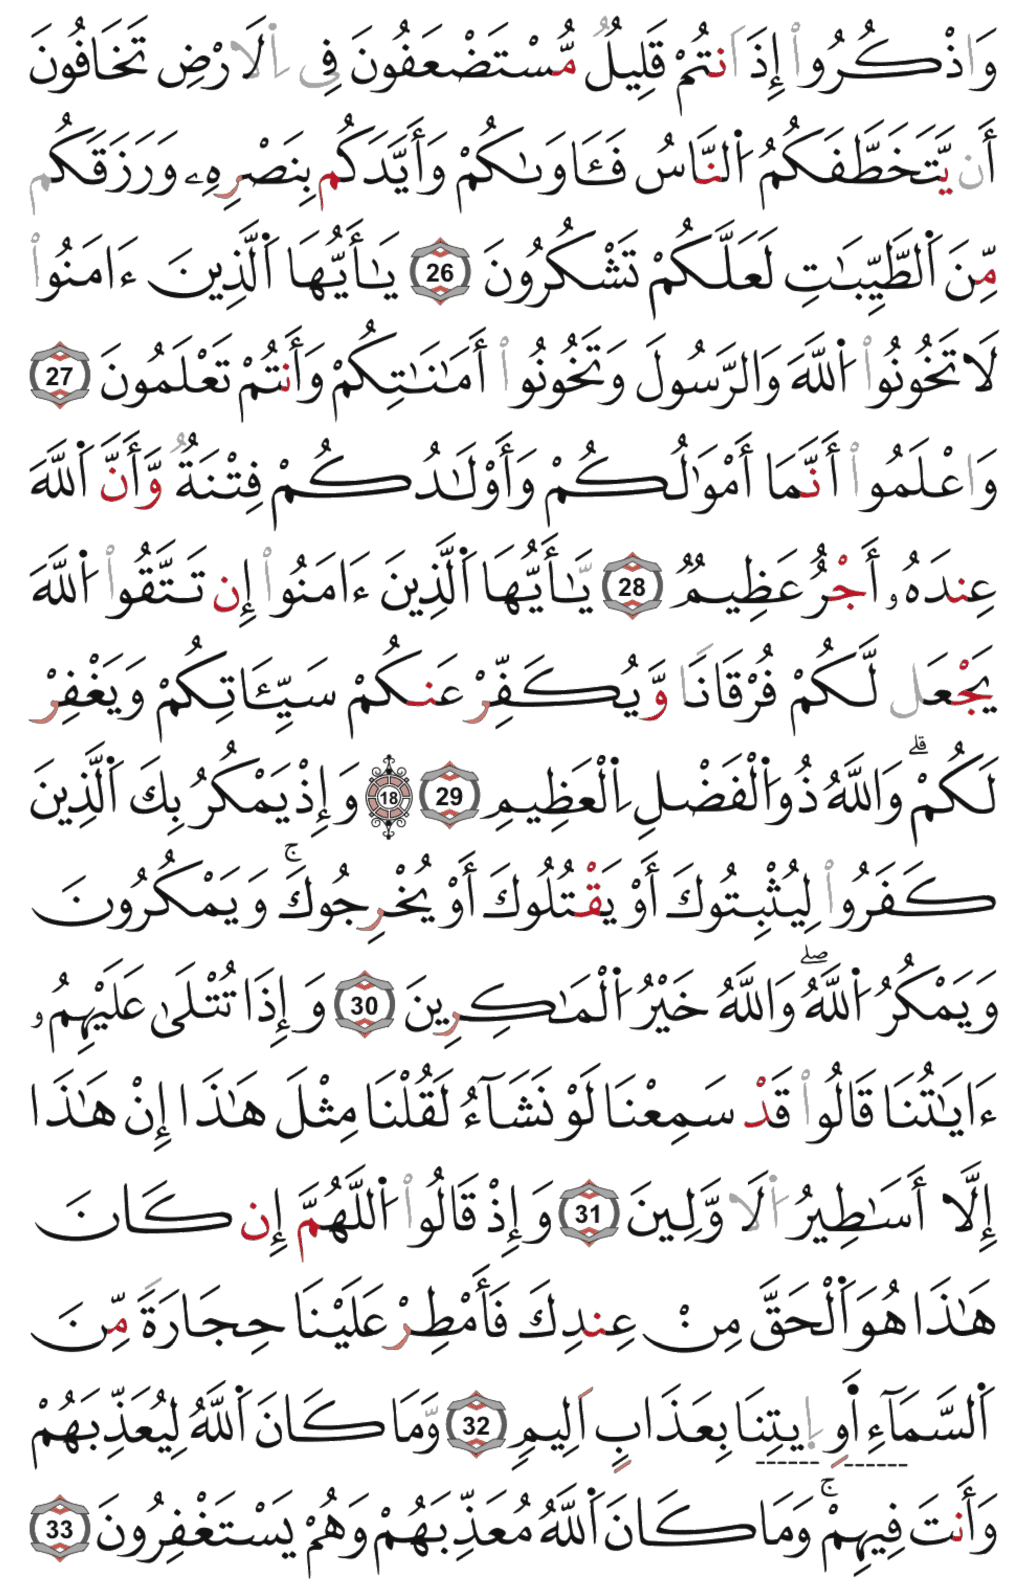 وَاذْكُرُوا۟ إِذَ اَنتُمْ قَلِيلٌ مُّسْتَضْعَفُونَ فِى اِ۬لَارْضِ تَخَافُونَ
أَن يَّتَخَطَّفَكُمُ اُ۬لنَّاسُ فَـَٔاوَىٰكُمْ وَأَيَّدَكُم بِنَصْرِهِۦ وَرَزَقَكُم
مِّنَ اَ۬لطَّيِّبَٰتِ لَعَلَّكُمْ تَشْكُرُونَ 26 يَٰأَيُّهَا اَ۬لَّذِينَ ءَامَنُوا۟
لَا تَخُونُوا۟ اُ۬للَّهَ وَالرَّسُولَ وَتَخُونُوا۟ أَمَٰنَٰتِكُمْ وَأَنتُمْ تَعْلَمُونَ 27
وَاعْلَمُوا۟ أَنَّمَا أَمْوَٰلُكُمْ وَأَوْلَٰدُكُمْ فِتْنَةٌ وَّأَنَّ اَ۬للَّهَ
عِندَهُۥ أَجْرٌ عَظِيمٌ 28 يَّٰأَيُّهَا اَ۬لَّذِينَ ءَامَنُوا۟ إِن تَتَّقُوا۟ اُ۬للَّهَ
يَجْعَل لَّكُمْ فُرْقَانًا وَّيُكَفِّرْ عَنكُمْ سَيِّـَٔاتِكُمْ وَيَغْفِرْ
لَكُمْۗ وَاللَّهُ ذُو اُ۬لْفَضْلِ اِ۬لْعَظِيمِ 29 18 وَإِذْ يَمْكُرُ بِكَ اَ۬لَّذِينَ
كَفَرُوا۟ لِيُثْبِتُوكَ أَوْ يَقْتُلُوكَ أَوْ يُخْرِجُوكَۚ وَيَمْكُرُونَ
وَيَمْكُرُ اُ۬للَّهُۖ وَاللَّهُ خَيْرُ اُ۬لْمَٰكِرِينَ 30 وَإِذَا تُتْلَىٰ عَلَيْهِمُۥ
ءَايَٰتُنَا قَالُوا۟ قَدْ سَمِعْنَا لَوْ نَشَآءُ لَقُلْنَا مِثْلَ هَٰذَا إِنْ هَٰذَا
إِلَّا أَسَٰطِيرُ اُ۬لَاوَّلِينَ 31 وَإِذْ قَالُوا۟ اُ۬للَّهُمَّ إِن كَانَ
هَٰذَا هُوَ اَ۬لْحَقَّ مِنْ عِندِكَ فَأَمْطِرْ عَلَيْنَا حِجَارَةً مِّنَ
اَ۬لسَّمَآءِ اَ۬وِ اِيتِنَا بِعَذَابٍ اَلِيمٍ 32 وَّمَا كَانَ اَ۬للَّهُ لِيُعَذِّبَهُمْ
وَأَنتَ فِيهِمْۚ وَمَا كَانَ اَ۬للَّهُ مُعَذِّبَهُمْ وَهُمْ يَسْتَغْفِرُونَ 33